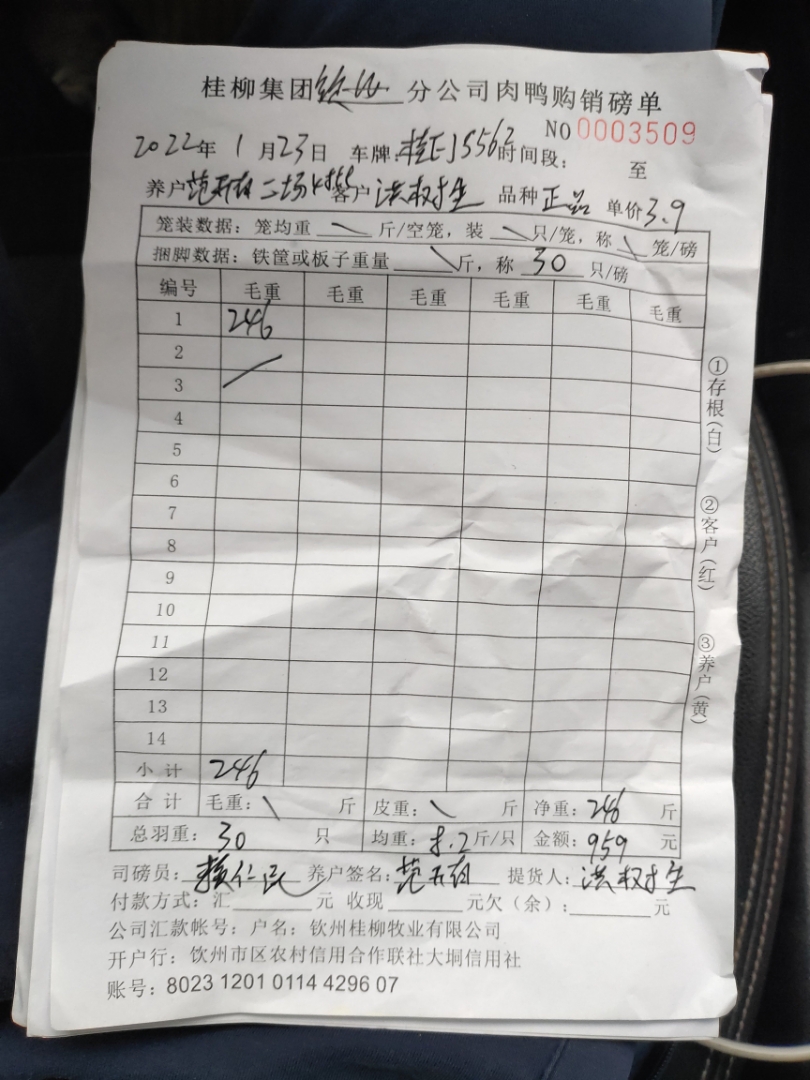 桂柳集团钦州分公司肉鸭购销磅单
NO 0003509
2022年1月23日 车牌:桂EJ5563时间段: 至
养户范开 二场 客户 洪权生 品种 正品 单价3.9
笼装数据:笼均重 \ 斤/空笼,装 \ 只/笼,称 \ 笼/磅
捆脚数据:铁筐或板子重量 \ 斤,称 30 只/磅
编号 毛重 毛重 毛重 毛重 毛重 毛重
1 246
2
3
4
5
6
7
8
9
10
11
12
13
14
小计 246
合计 毛重:\ 斤 皮重:\ 斤 净重:246 斤
总羽重:30 只 均重:8.2斤/只 金额:959 元
司磅员:赖仁民 养户签名:范开 提货人:洪权生
付款方式:汇 元 收现 元欠(余): 元
公司汇款帐号:户名:钦州桂柳牧业有限公司
开户行:饮州市区农村信用合作联社大垌信用社
账号:8023 1201 0114 4296 07
①存根(白)
②客户(红)
③养户(黄)